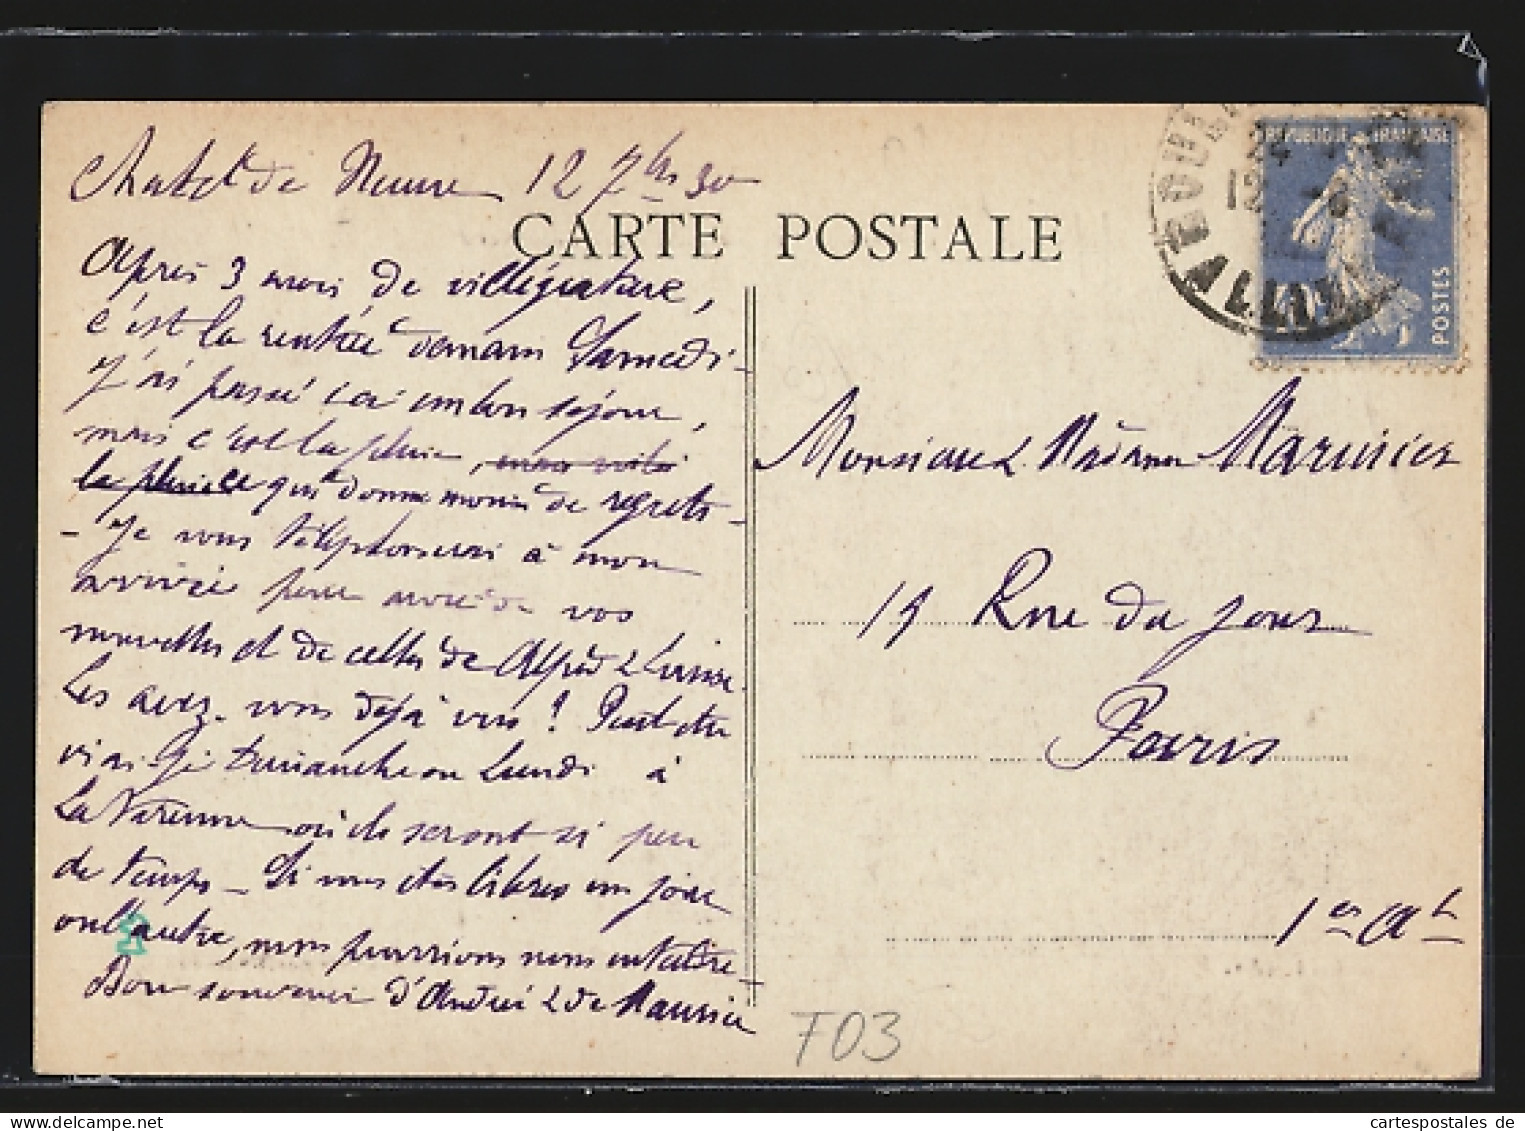 12 7bre 30
CARTE POSTALE
Après 3 mois de villégiature,
c'est la rentrée demain Samedi -
J'ai passé ici un bon séjour,
mais c'est la pluie,
la pluie qui donne moins de regrets -
- Je vous téléphonerai à mon
arrivée pour avoir de vos
nouvelles et de celles de Alfred &
Les avez-vous déjà vus ! Peut-être
irai-je dimanche ou Lundi à
La Varenne où ils seront si peu
de temps - Si vous êtes libres un jour
ou l'autre, nous pourrions nous entendre -
Bon souvenir d'André & de Maurice
REPUBLIQUE FRANÇAISE
POSTES
24
12 - 9
Monsieur & Madame
15 Rue du Jour
Paris
1er Art
T03
cartespostales de